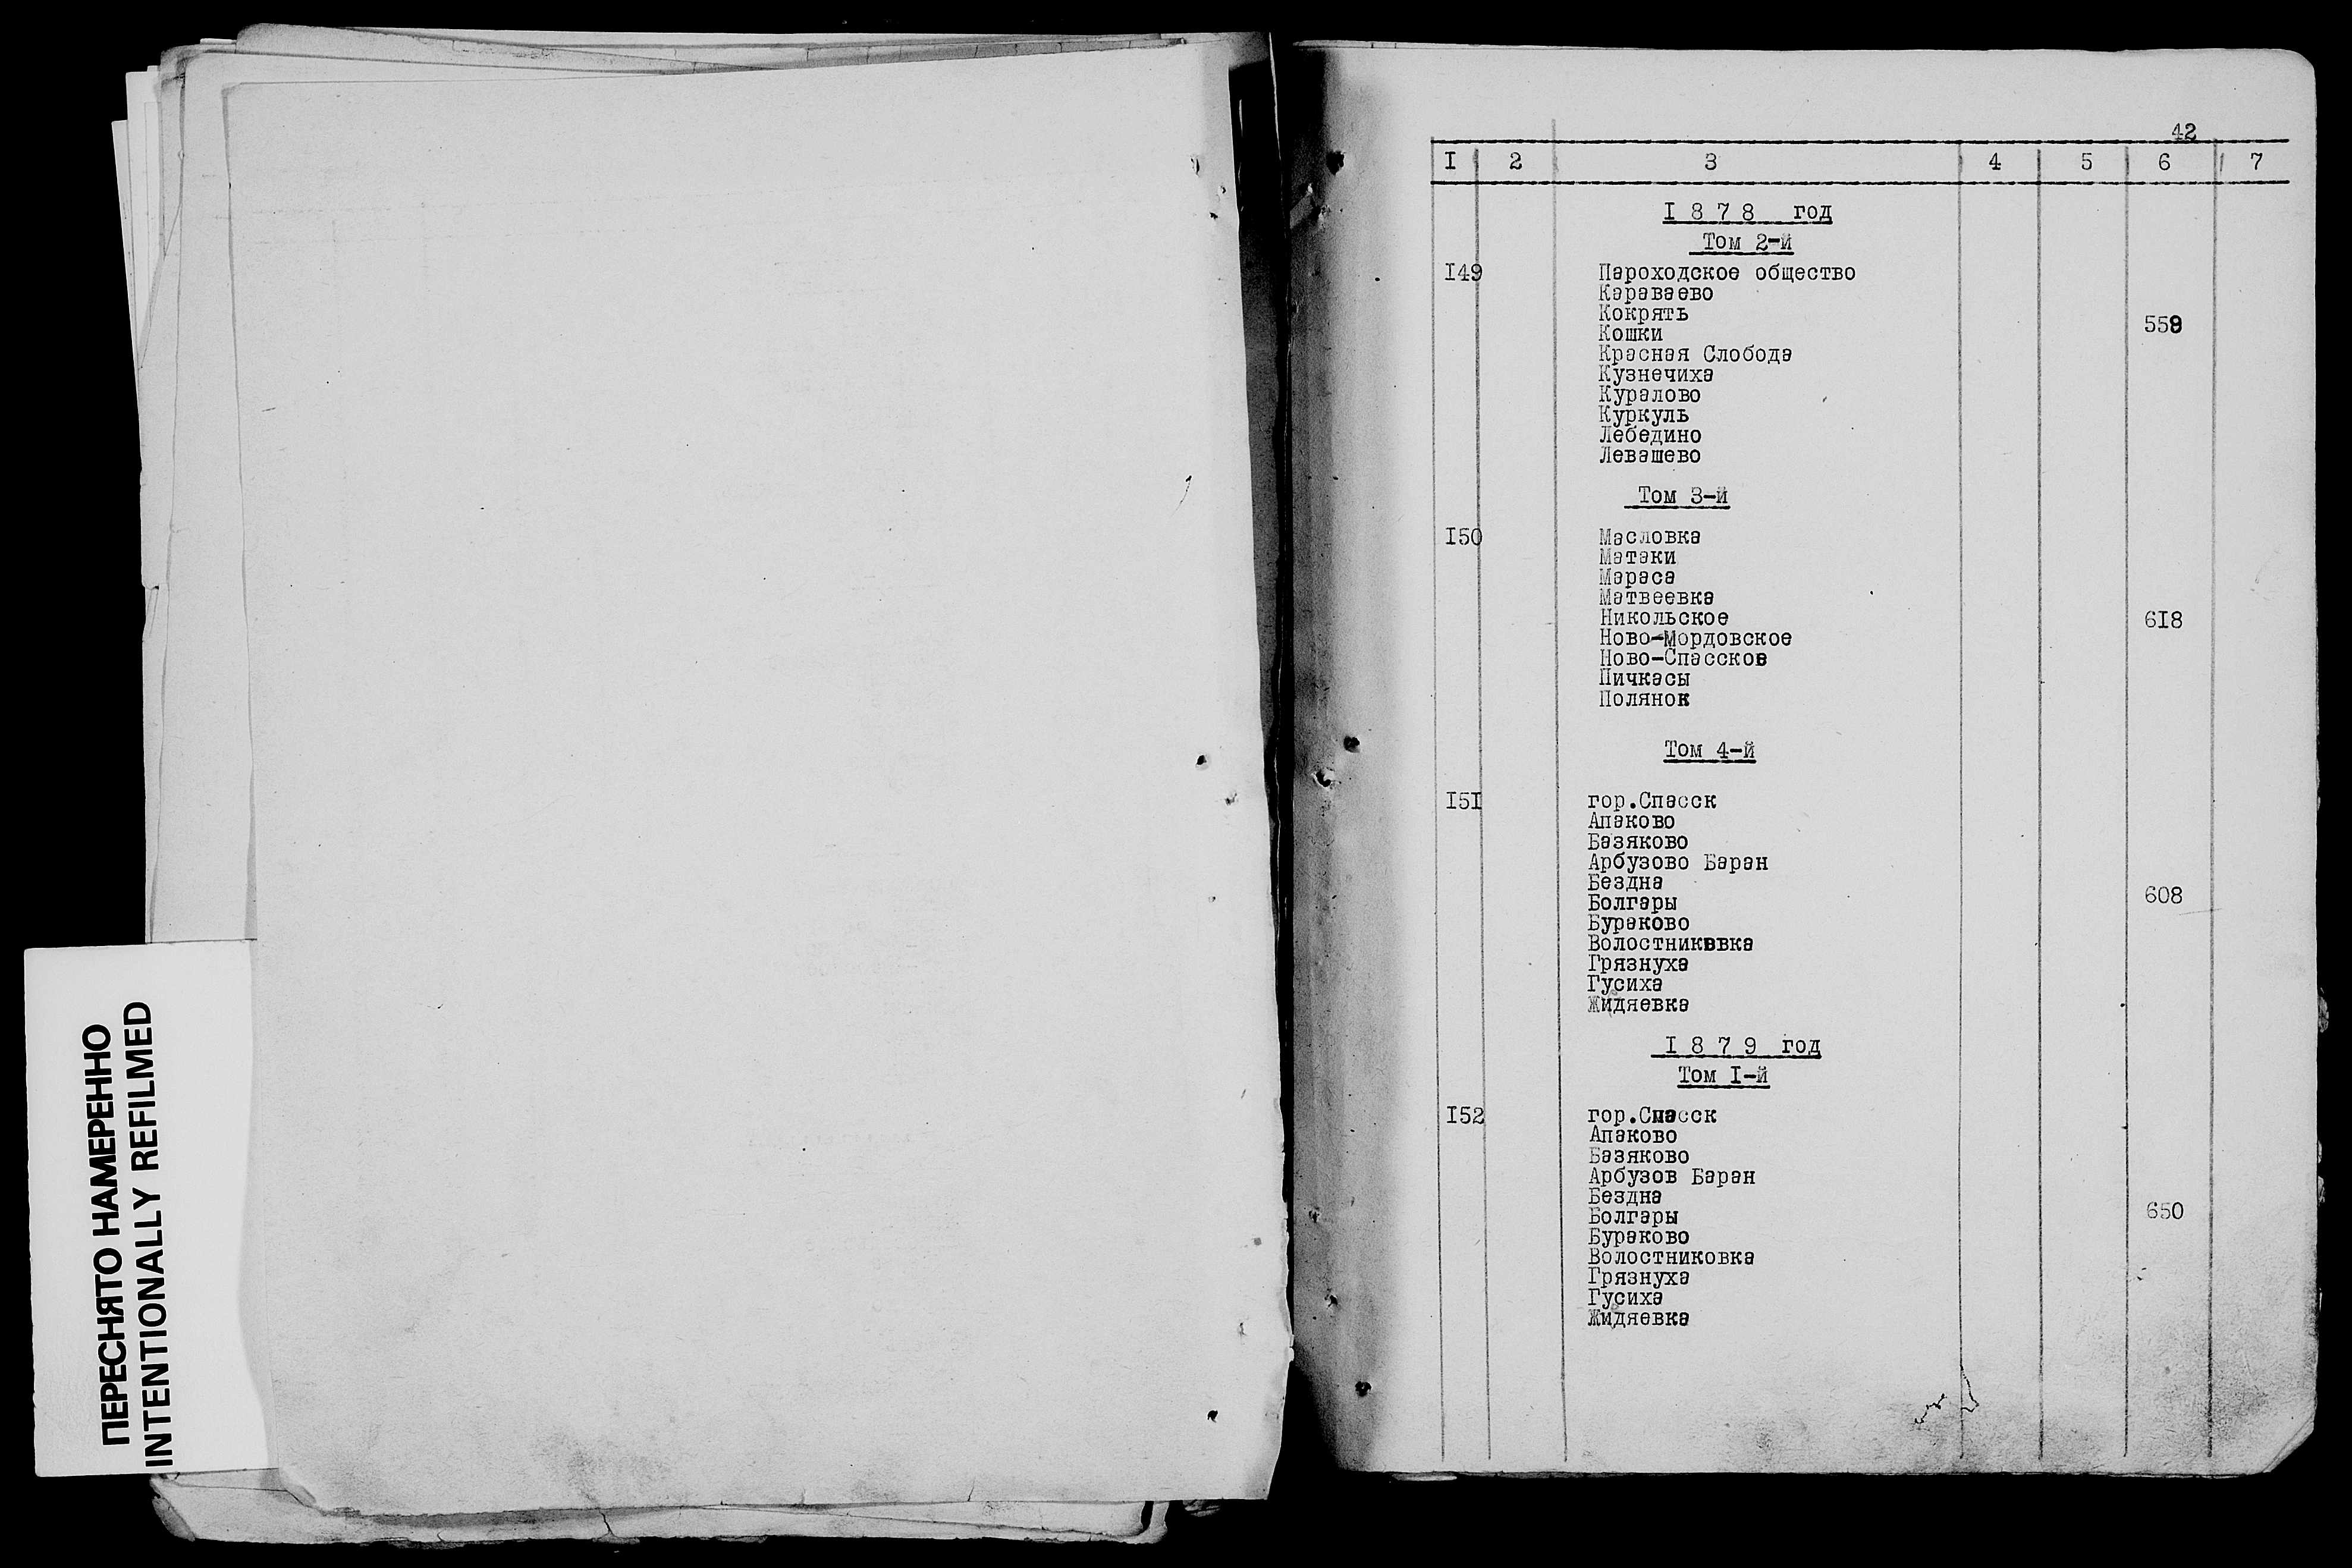 ПЕРЕСНЯТО НАМЕРЕННО
INTENTIONALLY REFILMED
42
I 2 3 4 5 6 7
I 8 7 8 год
Том 2-й
I49 Пароходское общество
Караваево
Кокрять
559
Кошки
Красная Слобода
Кузнечиха
Куралово
Куркуль
Лебедино
Левашево
Том 3-й
I50 Масловка
Матаки
Мараса
Матвеевка
Никольское 6I8
Ново-Мордовское
Ново-Спасское
Пичкасы
Полянок
Том 4-й
I5I гор.Спасск
Апаково
Базяково
Арбузово Баран
Бездна
Болгары 608
Бураково
Волостниковка
Грязнуха
Гусиха
Жидяевка
I 8 7 9 год
Том I-й
I52 гор.Спасск
Апаково
Базяково
Арбузов Баран
Бездна
Болгары 650
Бураково
Волостниковка
Грязнуха
Гусиха
Жидяевка